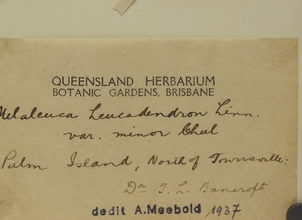 QUEENSLAND HERBARIUM
BOTANIC GARDENS, BRISBANE
Melaleuca Leucadendron Linn.
var. minor Chel
Palm Island, North of Townsville.
Dr T. L. Bancroft
dedit A.Meebold 1937